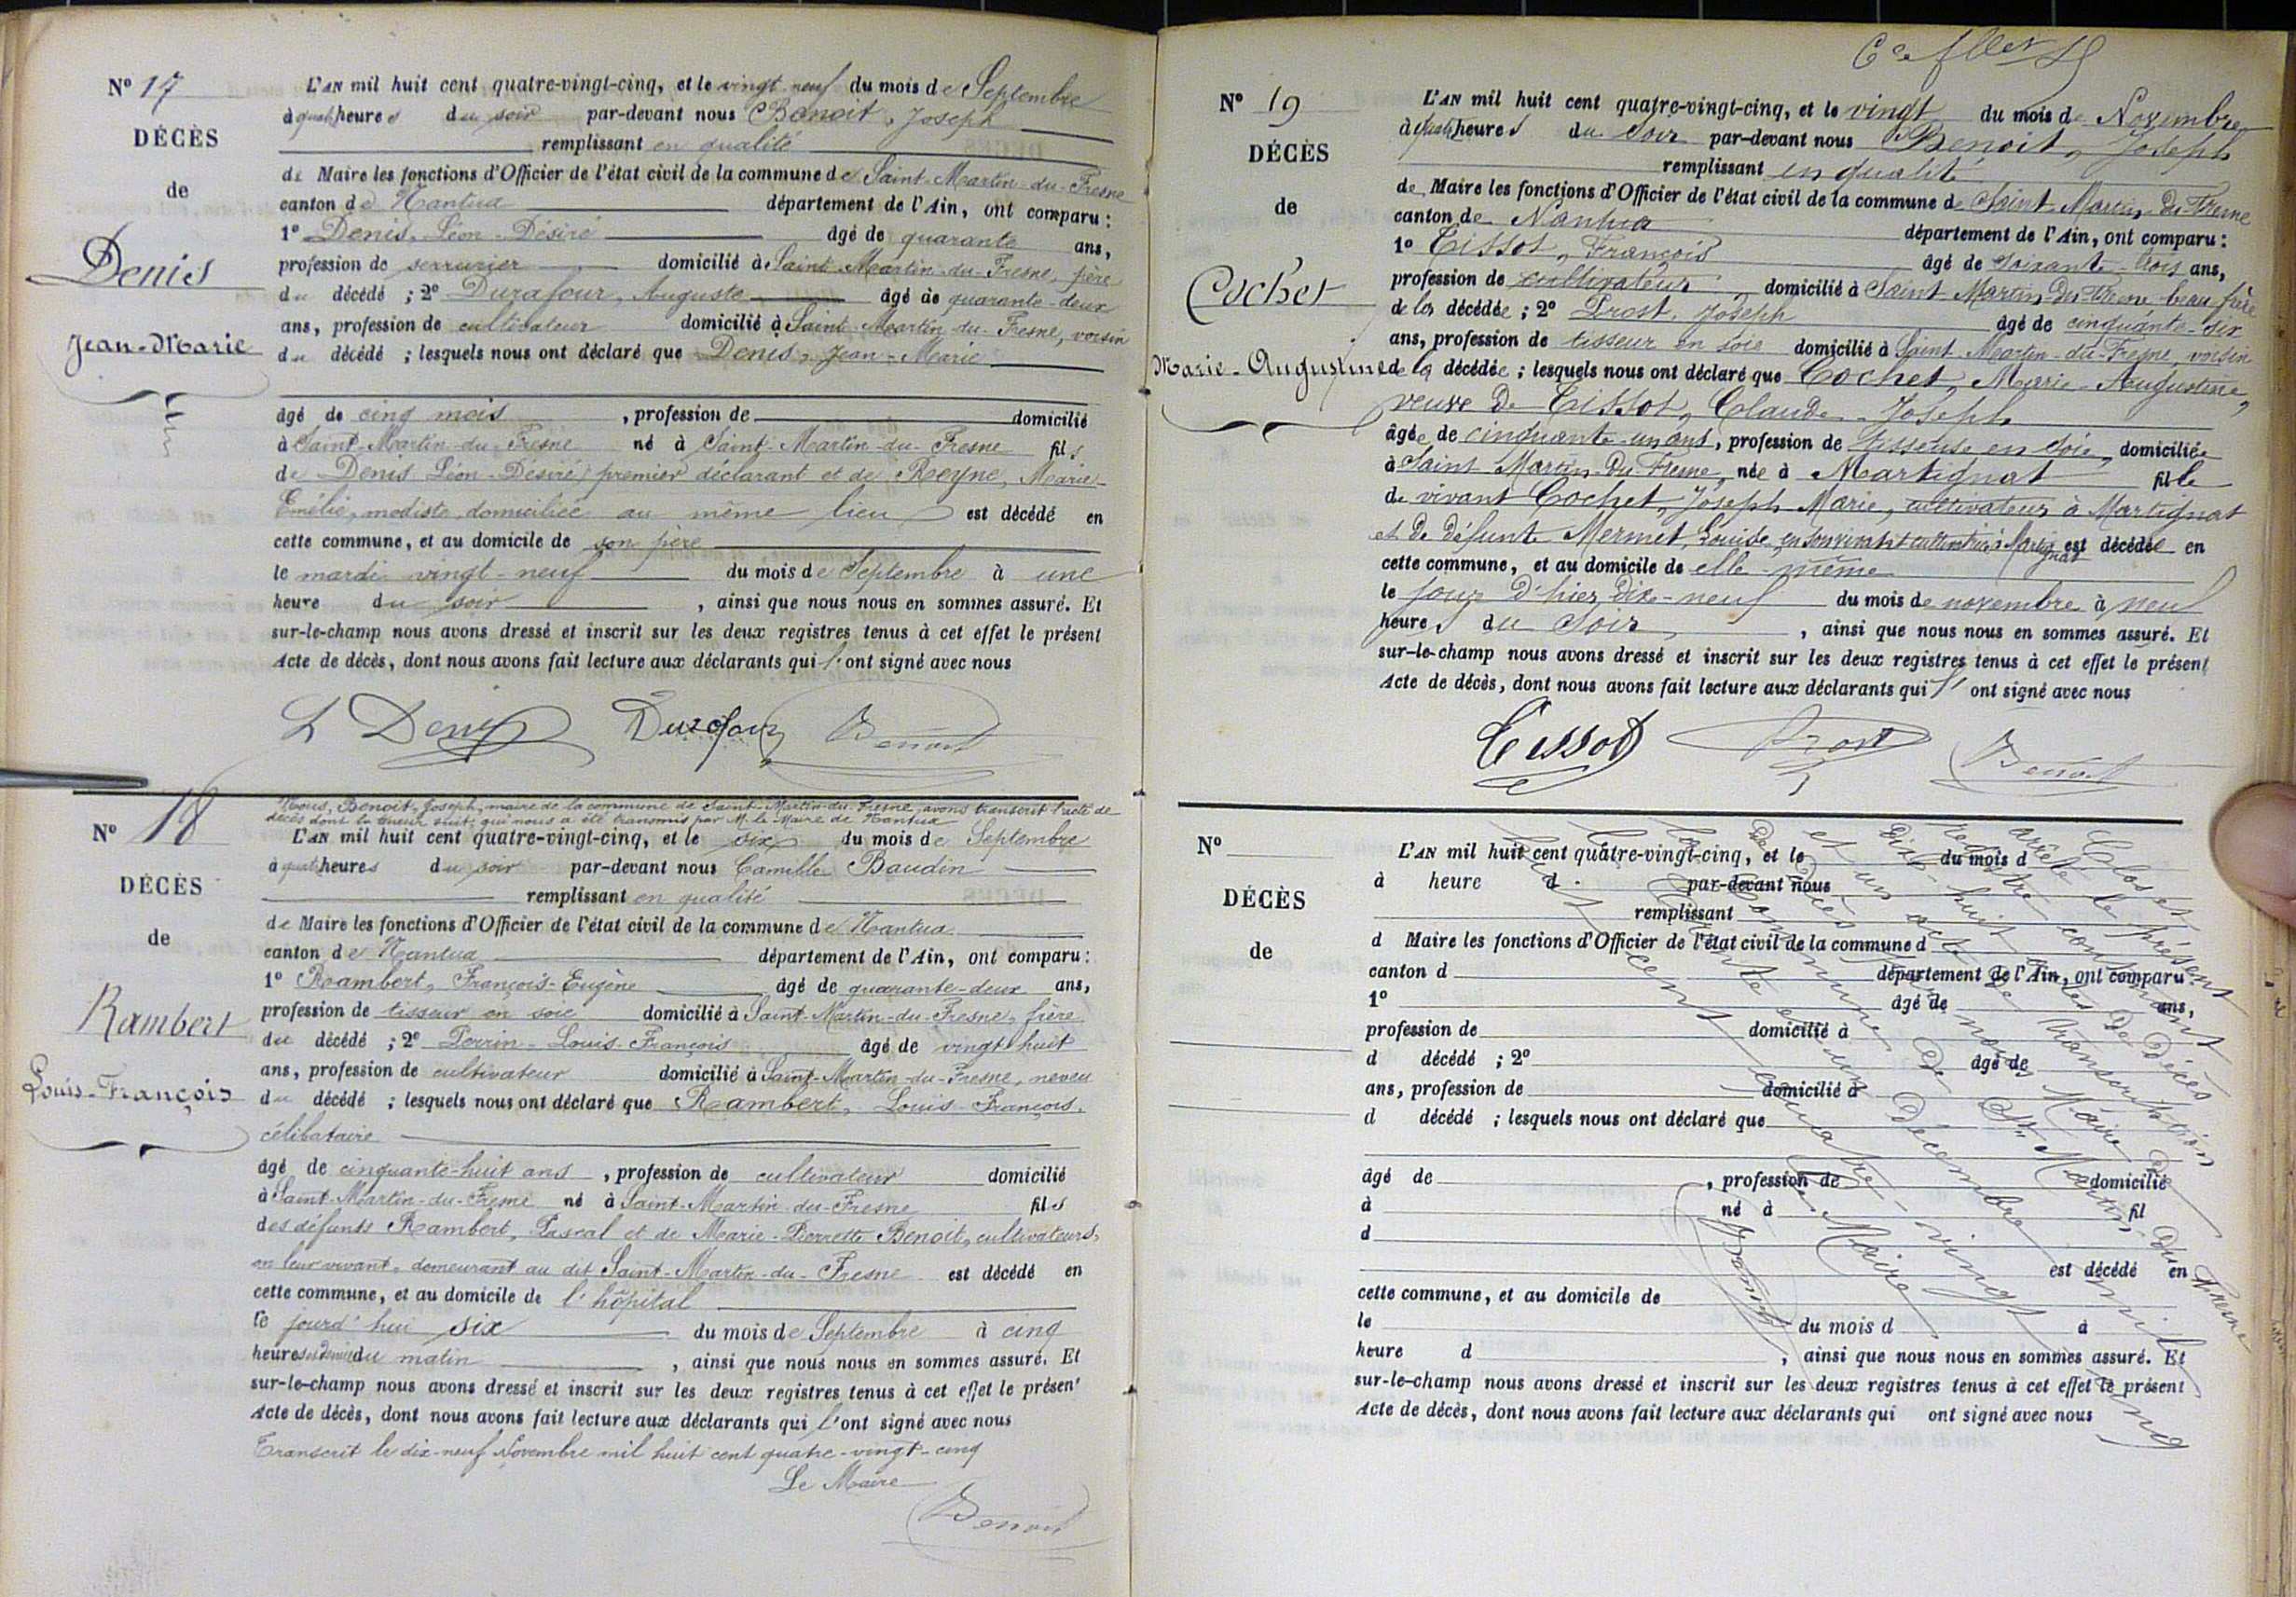 Nº 17
DÉCÈS
de
Denis
Jean-Marie
L'AN mil huit cent quatre-vingt-cinq, et le vingt-neuf du mois de Septembre
à quatre heures du soir par-devant nous Benoit, Joseph
remplissant en qualité
de Maire les fonctions d'Officier de l'état civil de la commune de Saint-Martin-du-Fresne
canton de Nantua département de l'Ain, ont comparu :
1º Denis, Léon-Désiré âgé de quarante ans,
profession de serrurier domicilié à Saint-Martin-du-Fresne, père
du décédé ; 2º Durafour, Auguste âgé de quarante-deux
ans, profession de cultivateur domicilié à Saint-Martin-du-Fresne, voisin
du décédé ; lesquels nous ont déclaré que Denis, Jean-Marie
âgé de cinq mois , profession de domicilié
à Saint-Martin-du-Fresne né à Saint-Martin-du-Fresne fils
de Denis Léon-Desiré, premier déclarant et de Reyne, Marie-
Emélie, modiste, domiciliée au même lieu est décédé en
cette commune, et au domicile de son père
le mardi vingt-neuf du mois de Septembre à une
heure du soir , ainsi que nous nous en sommes assuré. Et
sur-le-champ nous avons dressé et inscrit sur les deux registres tenus à cet effet le présent
Acte de décès, dont nous avons fait lecture aux déclarants qui l'ont signé avec nous
L Denis Durafour Benoit
Nº 18
DÉCÈS
de
Rambert
Louis-François
Nous, Benoit, Joseph, maire de la commune de Saint-Martin-du-Fresne, avons transcrit l'acte de
décès dont la teneur suit, qui nous a été transmis par M. le Maire de Nantua
L'AN mil huit cent quatre-vingt-cinq, et le six du mois de Septembre
à quatre heures du soir par-devant nous Camille Baudin
remplissant en qualité
de Maire les fonctions d'Officier de l'état civil de la commune de Nantua
canton de Nantua département de l'Ain, ont comparu :
1º Rambert, François-Eugène âgé de quarante-deux ans,
profession de tisseur en soie domicilié à Saint-Martin-du-Fresne, frère
du décédé ; 2º Perrin-Louis-François âgé de vingt-huit
ans, profession de cultivateur domicilié à Saint-Martin-du-Fresne, neveu
du décédé ; lesquels nous ont déclaré que Rambert, Louis-François,
célibataire
âgé de cinquante-huit ans , profession de cultivateur domicilié
à Saint-Martin-du-Fresne né à Saint-Martin-du-Fresne fils
des défunts Rambert, Pascal et de Marie-Pierrette Benoit, cultivateurs,
en leur vivant, demeurant au dit Saint-Martin-du-Fresne est décédé en
cette commune, et au domicile de l'hôpital
le jourd'hui six du mois de Septembre à cinq
heures et demie du matin , ainsi que nous nous en sommes assuré. Et
sur-le-champ nous avons dressé et inscrit sur les deux registres tenus à cet effet le présent
Acte de décès, dont nous avons fait lecture aux déclarants qui l'ont signé avec nous
Transcrit le dix-neuf Novembre mil huit cent quatre-vingt-cinq
Le Maire
Benoit
Nº 19
DÉCÈS
de
Cochet
Marie-Augustine
L'AN mil huit cent quatre-vingt-cinq, et le vingt du mois de Novembre
à quatre heures du soir par-devant nous Benoit, Joseph
remplissant en qualité
de Maire les fonctions d'Officier de l'état civil de la commune de Saint-Martin-du-Fresne
canton de Nantua département de l'Ain, ont comparu :
1º Tissot, François âgé de soixante-trois ans,
profession de cultivateur, domicilié à Saint-Martin-du-Fresne beau frère
de la décédée ; 2º Prost, Joseph âgé de cinquante-six
ans, profession de tisseur en soie domicilié à Saint-Martin-du-Fresne, voisin
de la décédée ; lesquels nous ont déclaré que Cochet, Marie-Augustine,
veuve de Tissot, Claude-Joseph
âgée de cinquante-un ans, profession de tisseuse en soie, domiciliée
à Saint-Martin-du-Fresne, née à Martignat fille
de vivant Cochet, Joseph Marie, cultivateur à Martignat
et de défunte Mermet, Louise, en son vivant cultivatrice à Martignat est décédée en
cette commune, et au domicile de elle-même
le jour d'hier, dix-neuf du mois de novembre à neuf
heures du soir , ainsi que nous nous en sommes assuré. Et
sur-le-champ nous avons dressé et inscrit sur les deux registres tenus à cet effet le présent
Acte de décès, dont nous avons fait lecture aux déclarants qui l'ont signé avec nous
Tissot Prost Benoit
Nº
DÉCÈS
de
L'AN mil huit cent quatre-vingt-cinq, et le du mois d
à heure d par-devant nous
remplissant
d Maire les fonctions d'Officier de l'état civil de la commune d
canton d département de l'Ain, ont comparu :
1º âgé de ans,
profession de domicilié à
d décédé ; 2º âgé de
ans, profession de domicilié à
d décédé ; lesquels nous ont déclaré que
âgé de , profession de domicilié
à né à fil
d
est décédé en
cette commune, et au domicile de
le du mois d à
heure d , ainsi que nous nous en sommes assuré. Et
sur-le-champ nous avons dressé et inscrit sur les deux registres tenus à cet effet le présent
Acte de décès, dont nous avons fait lecture aux déclarants qui ont signé avec nous
Clos et
arrêté le présent
registre contenant
dix-huit actes de Décès
et un acte de transcription
de Décès par nous Maire de
la Commune de St Martin du Fresne
le trente et un Décembre mil
huit cent quatre-vingt cinq
Le Maire
Benoit